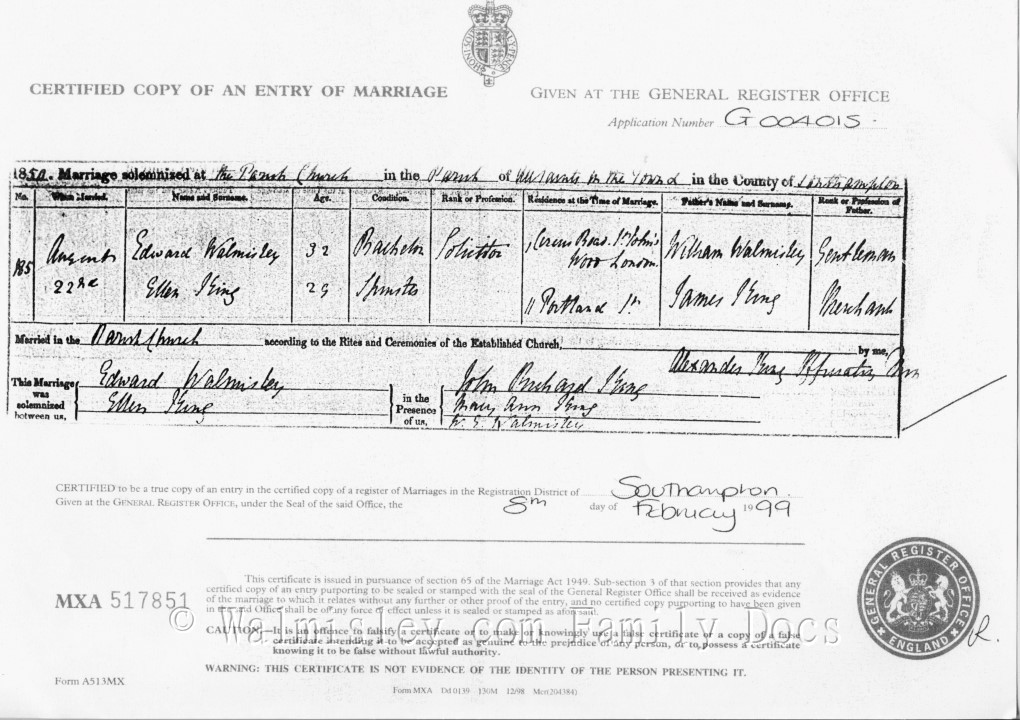 CERTIFIED COPY OF AN ENTRY OF MARRIAGE
GIVEN AT THE GENERAL REGISTER OFFICE
Application Number G 004015.
1850. Marriage solemnized at the Parish Church in the Parish of All Saints in the Town & in the County of Southampton
No. When Married. Name and Surname. Age. Condition. Rank or Profession. Residence at the Time of Marriage. Father's Name and Surname. Rank or Profession of Father.
185 August 22nd Edward Walmisley 32 Bachelor Solicitor 1 Circus Road St John's Wood London William Walmisley Gentleman
Ellen King 29 Spinster 11 Portland St James King Merchant
Married in the Parish Church according to the Rites and Ceremonies of the Established Church, by me,
Alexander King
This Marriage was solemnized between us, Edward Walmisley Ellen King in the Presence of us, John Richard King Mary Ann King W. G. Walmisley
CERTIFIED to be a true copy of an entry in the certified copy of a register of Marriages in the Registration District of Southampton.
Given at the GENERAL REGISTER OFFICE, under the Seal of the said Office, the 8th day of February 1999
MXA 517851
This certificate is issued in pursuance of section 65 of the Marriage Act 1949. Sub-section 3 of that section provides that any
certified copy of an entry purporting to be sealed or stamped with the seal of the General Register Office shall be received as evidence
of the marriage to which it relates without any further or other proof of the entry, and no certified copy purporting to have been given
in the said Office shall be of any force or effect unless it is sealed or stamped as aforesaid.
© Walmisley.com Family Docs
CAUTION:-It is an offence to falsify a certificate or to make or knowingly use a false certificate or a copy of a false
certificate intending it to be accepted as genuine to the prejudice of any person, or to possess a certificate
knowing it to be false without lawful authority.
WARNING: THIS CERTIFICATE IS NOT EVIDENCE OF THE IDENTITY OF THE PERSON PRESENTING IT.
GENERAL REGISTER OFFICE ENGLAND
Form A513MX
Form MXA Dd 0139 130M 12/98 Mcr(204384)